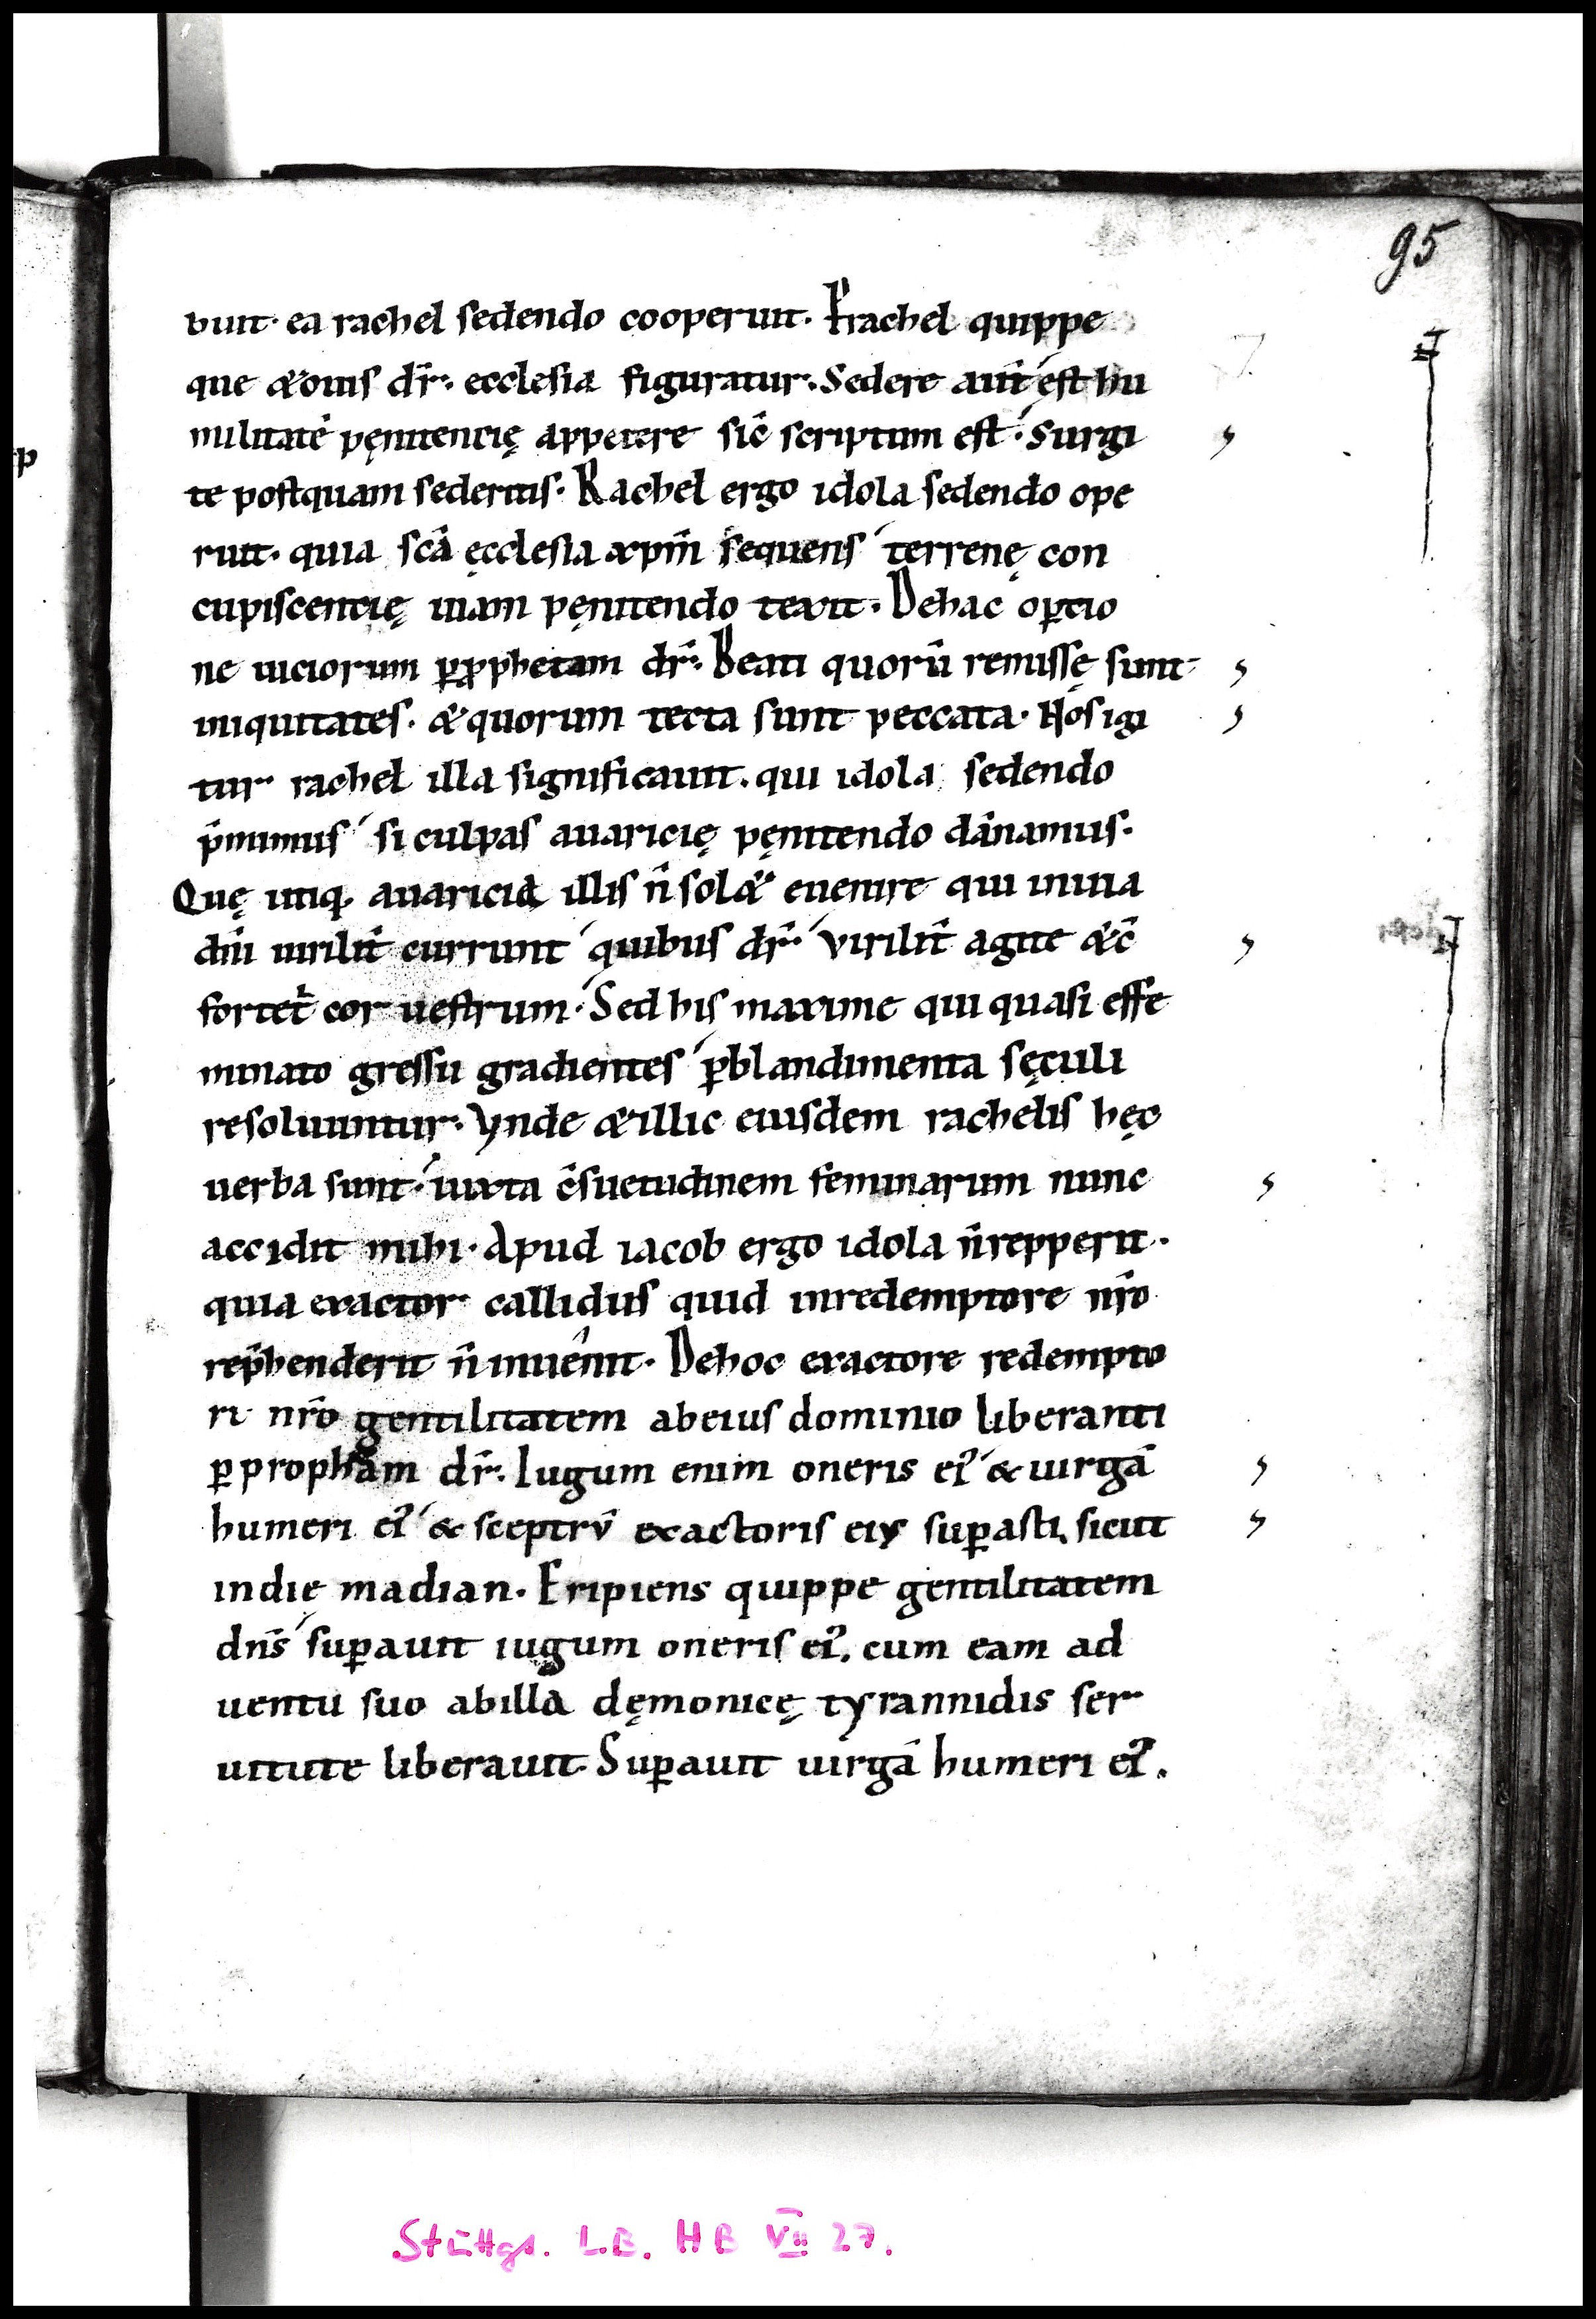 95
buit· ea rachel sedendo cooperuit. Rachel quippe
que & ouis dr̄. ecclesia figuratur. Sedere aut̄ est hu
militatē pęnitencię appetere sic̄ scriptum est. Surgi
te postquam sederitis. Rachel ergo idola sedendo ope
ruit. quia sc̄a ęcclesia xpm̄ sequens terrenę con
cupiscencię uiam pęnitendo texit. Dehac oꝑtio
ne uiciorum ꝑ ꝓphetam dr̄. Beati quorū remissę sunt
iniquitates. & quorum tecta sunt peccata. Nos igi
tur rachel illa significauit. qui idola sedendo
p̄mimus si culpas auaricię pęnitendo dānamus.
Quę utiq. auaricia illis n̄ sol& euenire qui inuia
dn̄i uirilit̄ currunt quibus dr̄ virilit̄ agite & c̄
fortet̄ cor uestrum. Sed his maxime qui quasi effe
minato gressu gradientes ꝑ blandimenta sęculi
resoluuntur. Vnde & illic eiusdem rachelis hęc
uerba sunt. iuxta c̄suetudinem feminarum nunc
accidit mihi. Apud iacob ergo idola n̄ repperit.
quia exactor callidus quid inredemptore nr̄o
rep̄henderit n̄ inuenit. Dehoc exactore redempto
ri nr̄o gentilitatem abeius dominio liberanti
ꝑ proph&am dr̄. Iugum enim oneris eiꝰ & uirgā
humeri eiꝰ & sceptrū exactoris eiꝰ suꝑasti, sicut
indie madian. Eripiens quippe gentilitatem
dn̄s suꝑauit iugum oneris eiꝰ. cum eam ad
uentu suo abilla dęmonicę tyrannidis ser
uitute liberauit. Suꝑauit uirgā humeri eiꝰ.
Stuttg. L.B. HB VII 27.